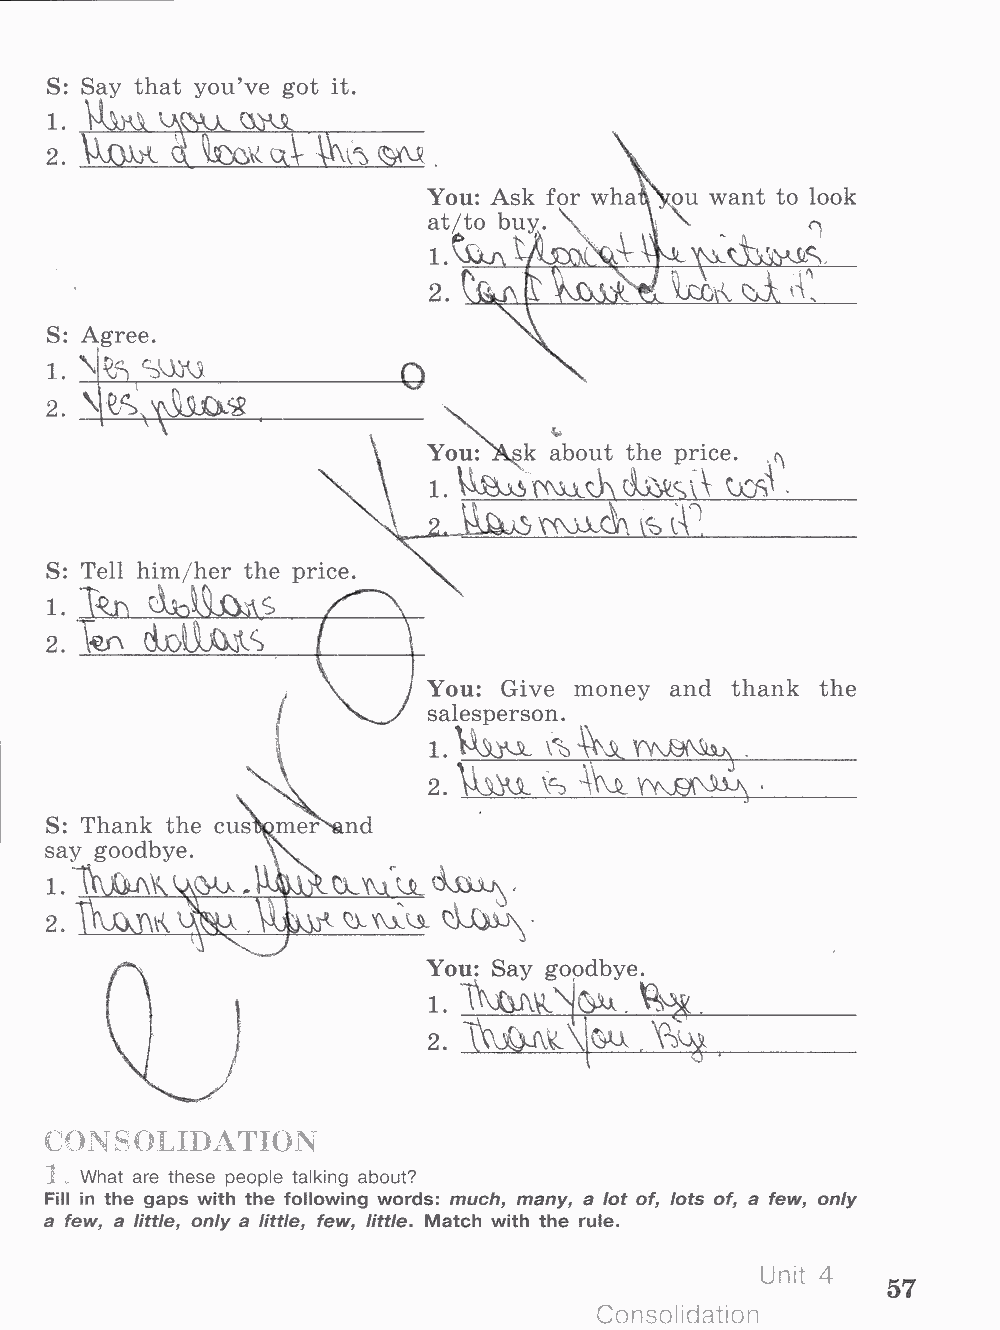 S: Say that you've got it.
1. Here you are
2. Have a look at this one.
You: Ask for what you want to look
at/to buy.
1. Can I look at the pictures?
2. Can I have a look at it?
S: Agree.
1. Yes, sure
2. Yes, please
You: Ask about the price.
1. How much does it cost?
2. How much is it?
S: Tell him/her the price.
1. Ten dollars
2. Ten dollars
You: Give money and thank the
salesperson.
1. Here is the money.
2. Here is the money.
S: Thank the customer and
say goodbye.
1. Thank you. Have a nice day.
2. Thank you. Have a nice day.
You: Say goodbye.
1. Thank You. Bye.
2. Thank You. Bye.
CONSOLIDATION
1. What are these people talking about?
Fill in the gaps with the following words: much, many, a lot of, lots of, a few, only
a few, a little, only a little, few, little. Match with the rule.
Unit 4
57
Consolidation